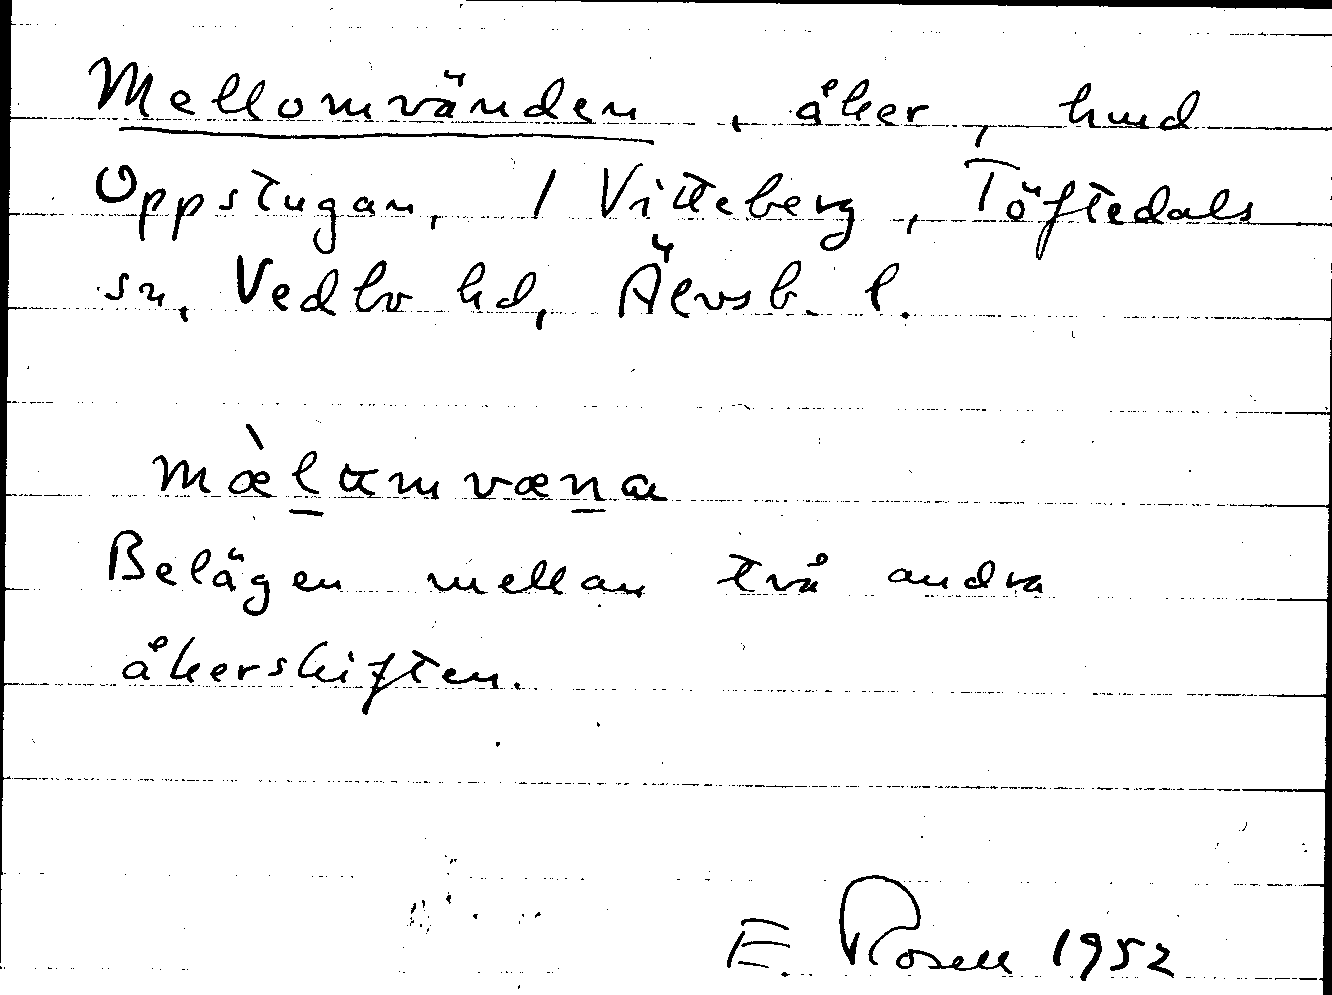 Mellomvänden, åker, hmd
Oppstugan, 1 Vitteberg, Töftedals
sn, Vedbo hd, Älvsb. l.
mæ̀l̲ɑmvæn̲a
Belägen mellan två andra
åkerskiften.
E. Rosell 1952